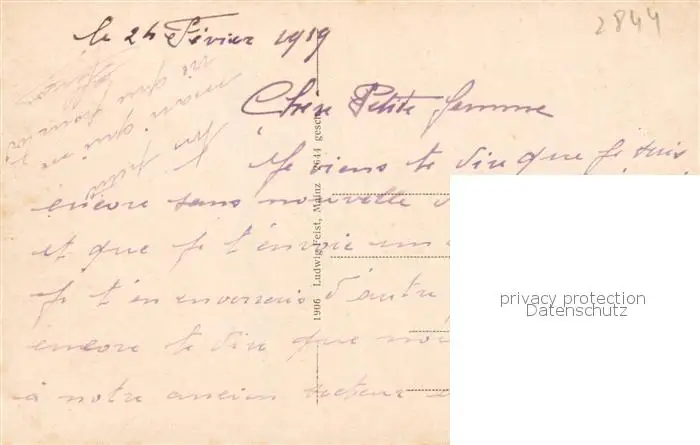 2844
le 24 Février 1919
Chère Petite femme
Je viens te dire que je suis
encore sans nouvelle
et que je t'envoie un
je t'en enverrais d'autre
encore te dire que
à notre ancien secteur
1906 Ludwig Feist, Mainz 2644 gesch.
privacy protection
Datenschutz